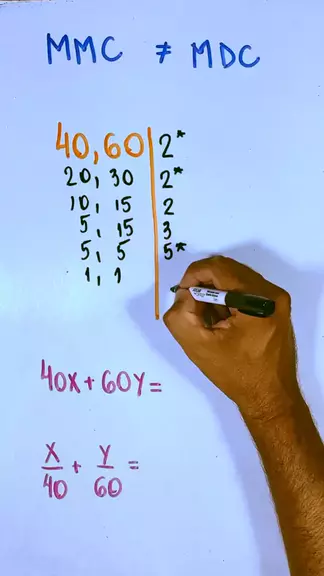 MMC ≠ MDC
40, 60 | 2*
20, 30 | 2*
10, 15 | 2
5, 15 | 3
5, 5 | 5*
1, 1
40X + 60Y =
X/40 + Y/60 =